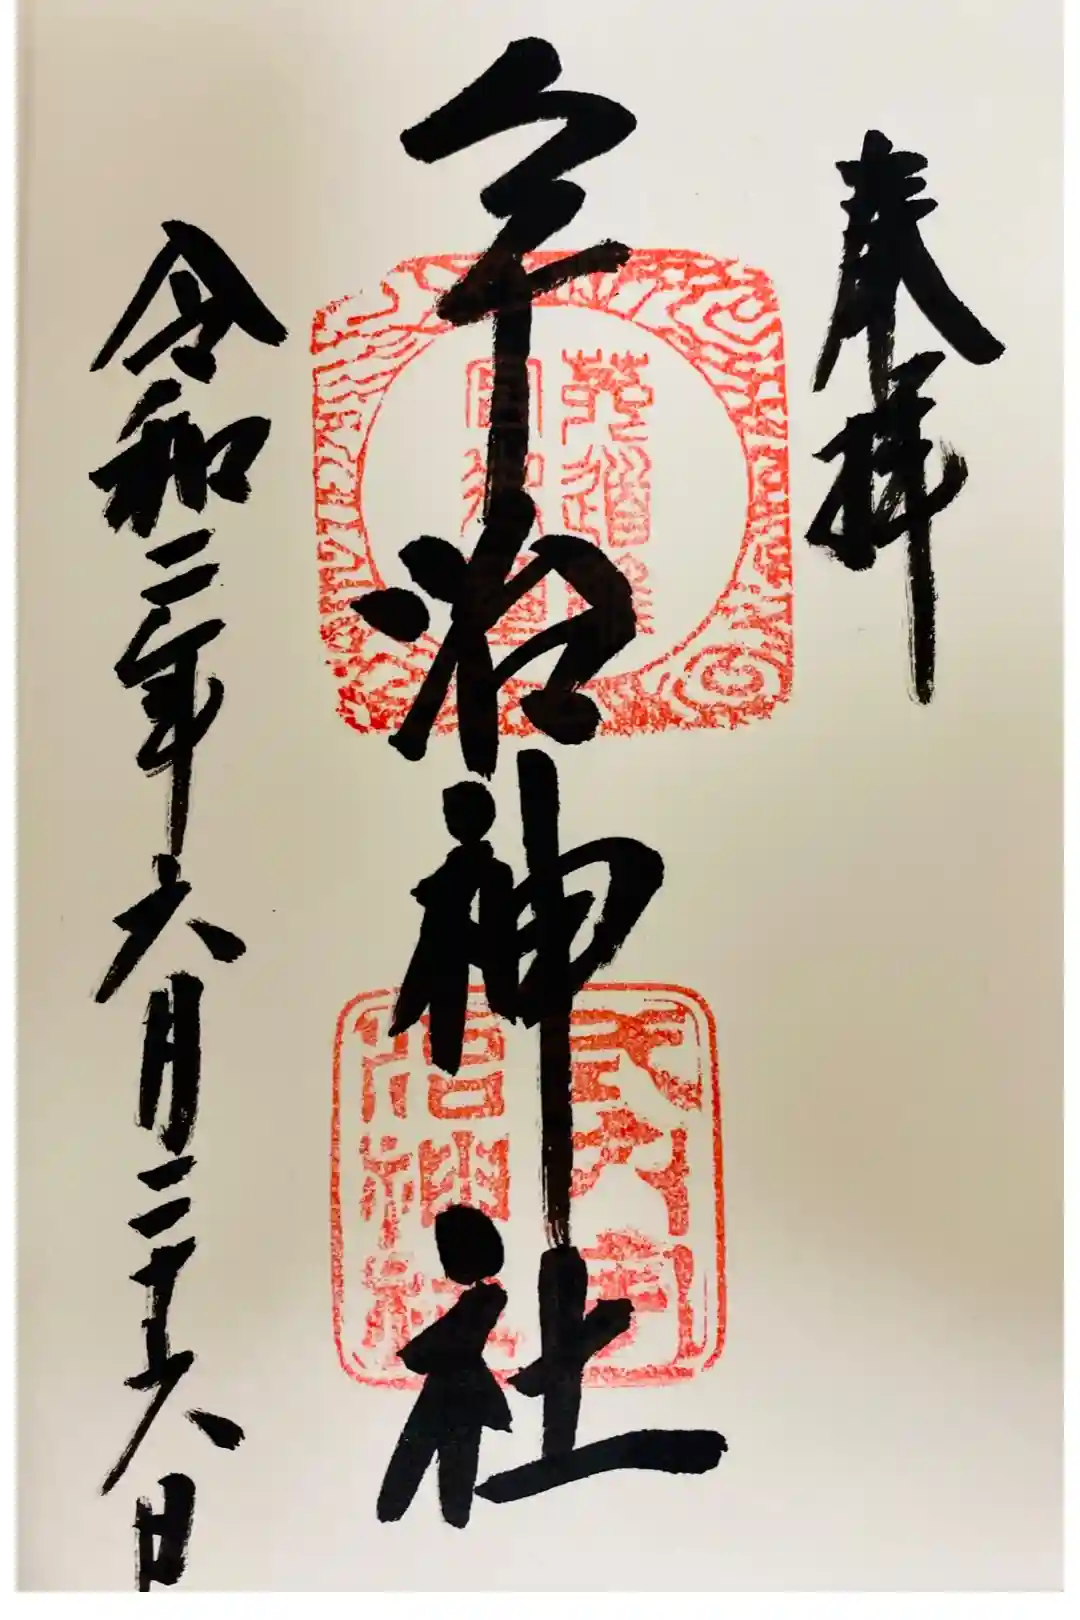 奉拝
宇治神社
令和二年六月二十六日